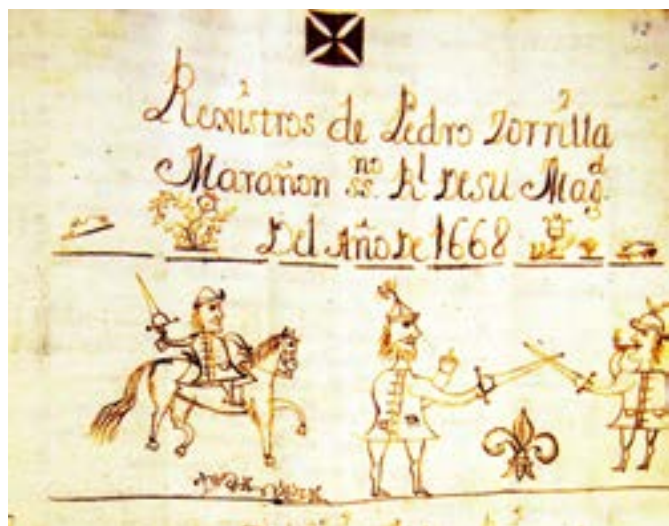 Registros de Pedro Zorrilla
Marañon ssno. Rl DESU Magd.
Del Año De 1668